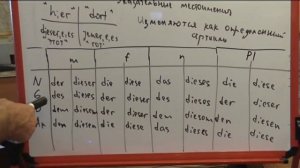 указательные местоимения
"hier" "dort"
изменяются как определенный
dieser,e,es jener,e,es артикль
"тот"
m f n Pl
N der dieser die diese das dieses die diese
des dieses der dieser des dieses der dieser
dem diesem der dieser dem diesem den diesen
den diesen die diese das dieses die diese